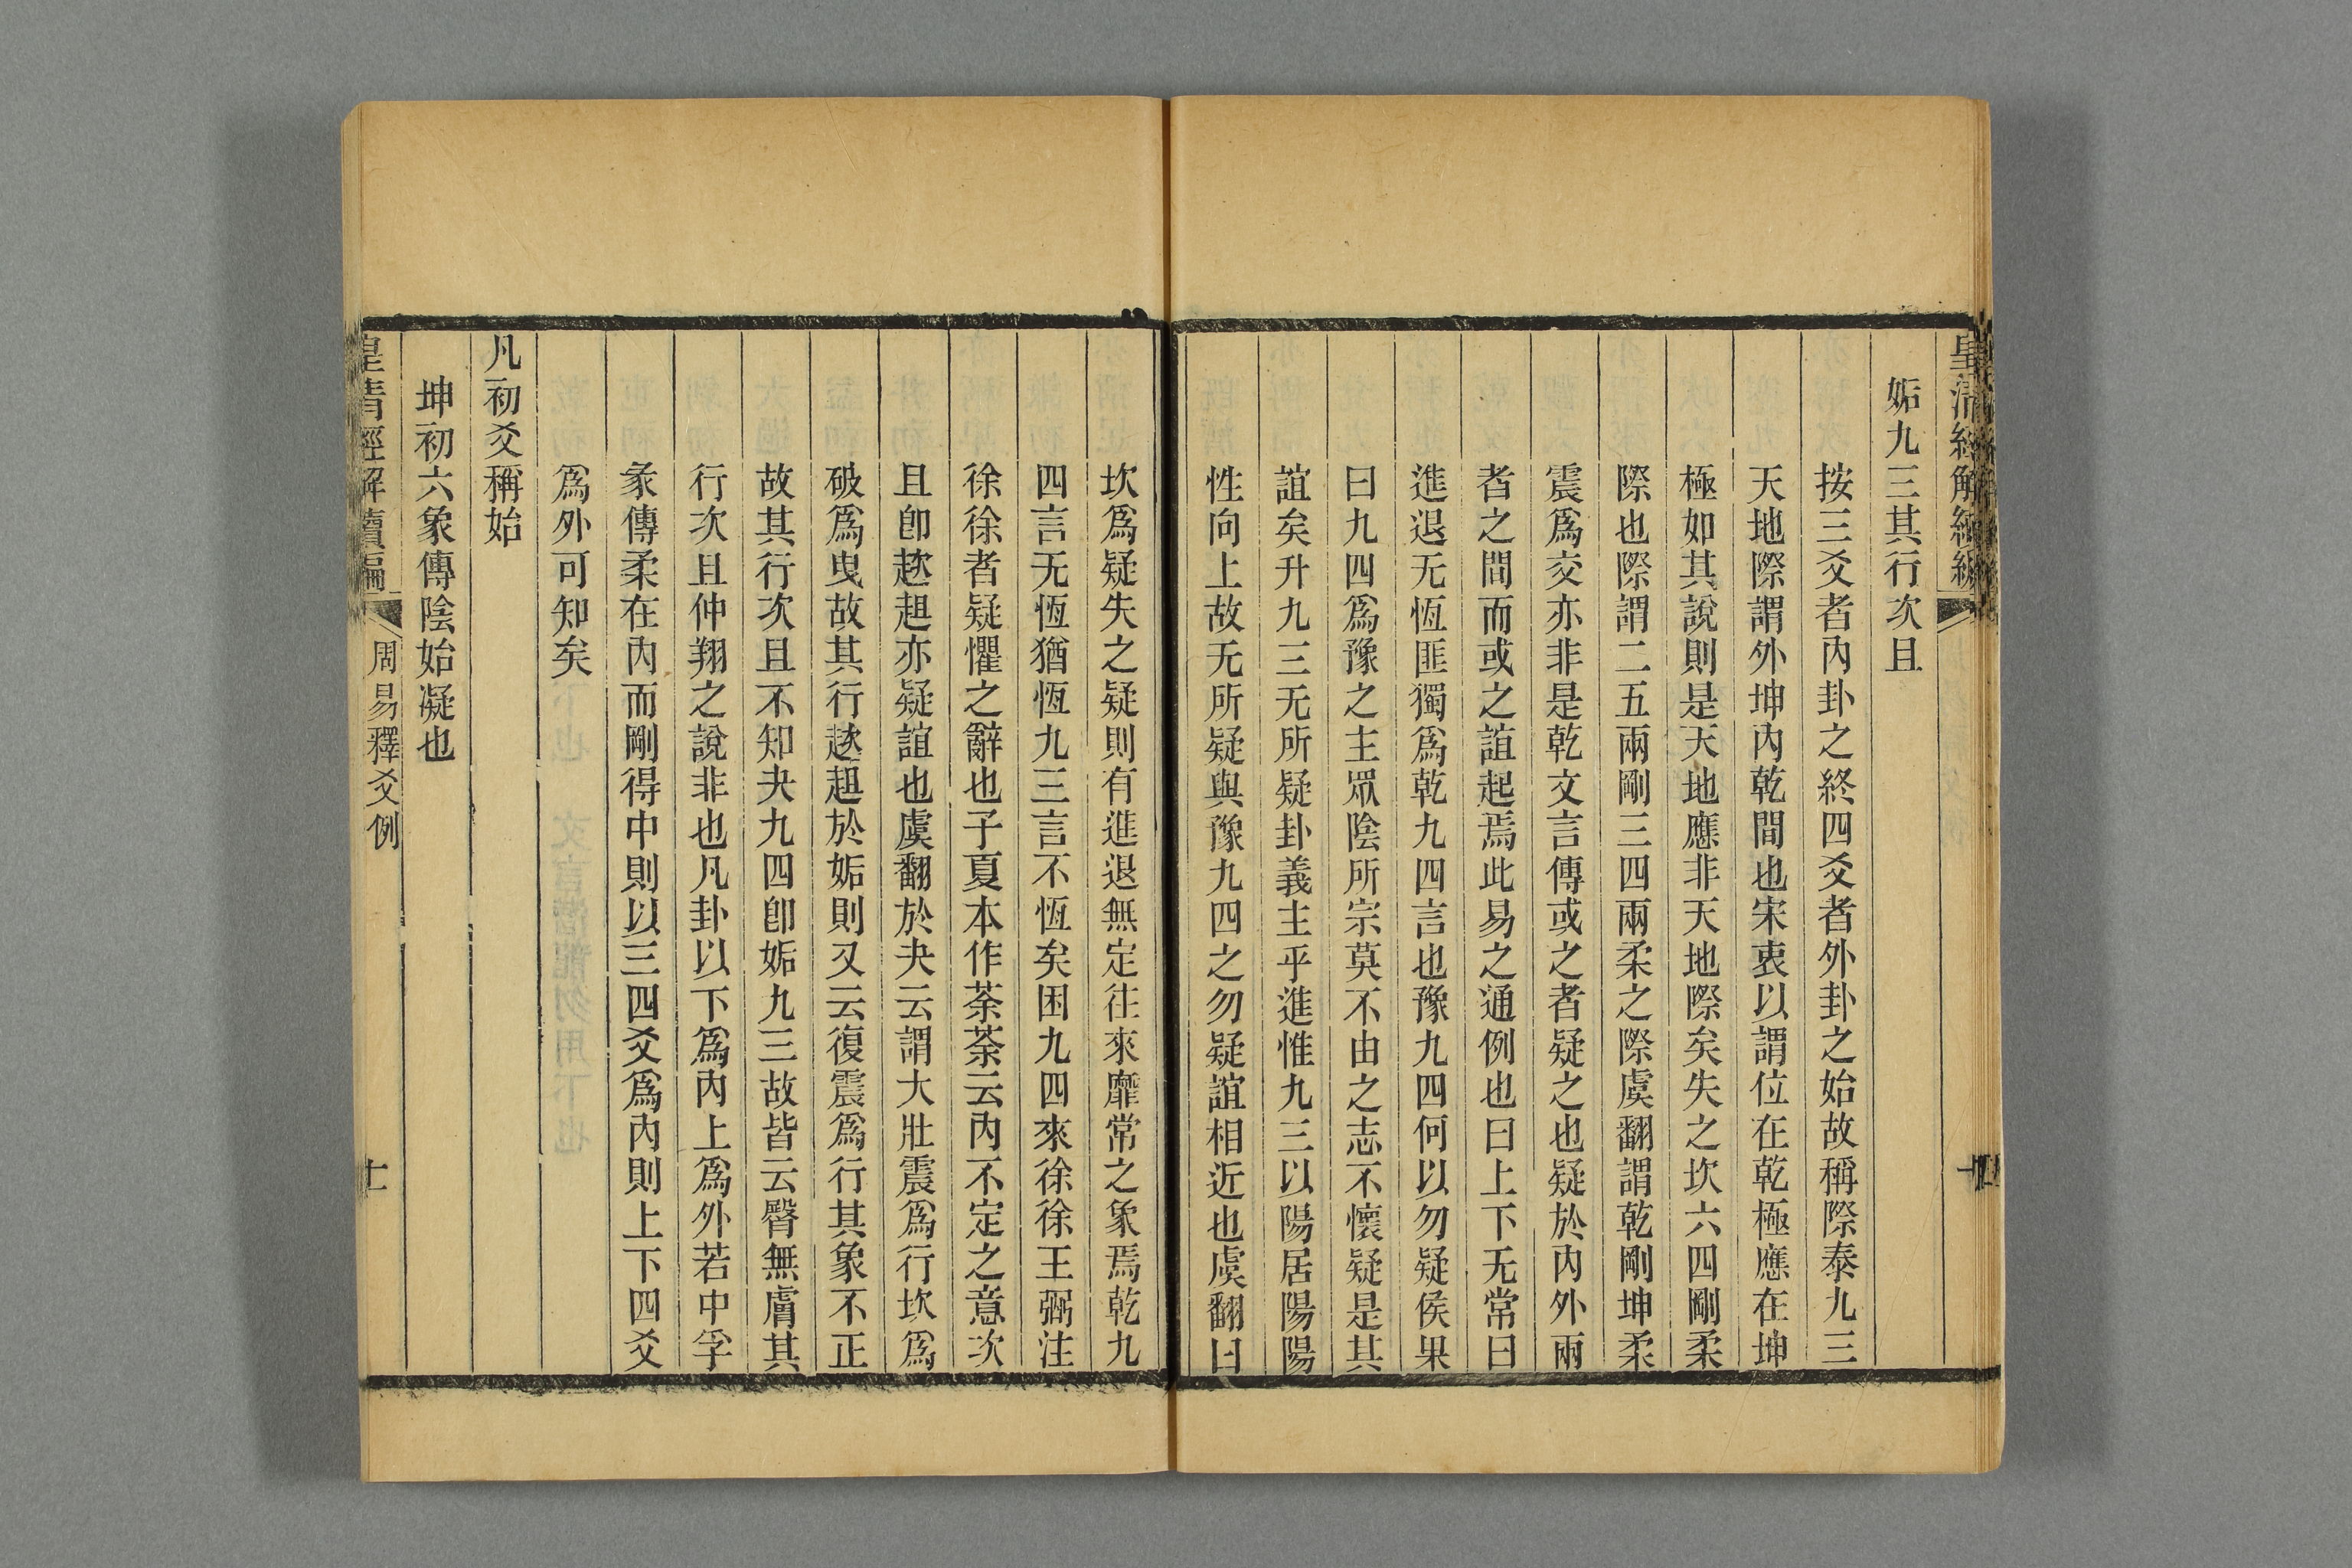 皇清經解續編
姤九三其行次且
按三爻者內卦之終四爻者外卦之始故稱際泰九三
天地際謂外坤內乾間也宋衷以謂位在乾極應在坤
極如其說則是天地應非天地際矣失之坎六四剛柔
際也際謂二五兩剛三四兩柔之際虞翻謂乾剛坤柔
震爲交亦非是乾文言傳或之者疑之也疑於內外兩
者之間而或之誼起焉此易之通例也曰上下无常曰
進退无恆匪獨爲乾九四言也豫九四何以勿疑侯果
曰九四爲豫之主眾陰所宗莫不由之志不懷疑是其
誼矣升九三无所疑卦義主乎進惟九三以陽居陽陽
性向上故无所疑與豫九四之勿疑誼相近也虞翻曰
坎爲疑失之疑則有進退無定往來靡常之象焉乾九
四言无恆猶恆九三言不恆矣困九四來徐徐王弼注
徐徐者疑懼之辭也子夏本作荼荼云內不定之意次
且卽趑趄亦疑誼也虞翻於夬云謂大壯震爲行坎爲
破爲曳故其行趑趄於姤則又云復震爲行其象不正
故其行次且不知夬九四卽姤九三故皆云臀無膚其
行次且仲翔之說非也凡卦以下爲內上爲外若中孚
彖傳柔在內而剛得中則以三四爻爲內則上下四爻
爲外可知矣
凡初爻稱始
坤初六象傳陰始凝也
皇清經解續編
周易釋爻例
十